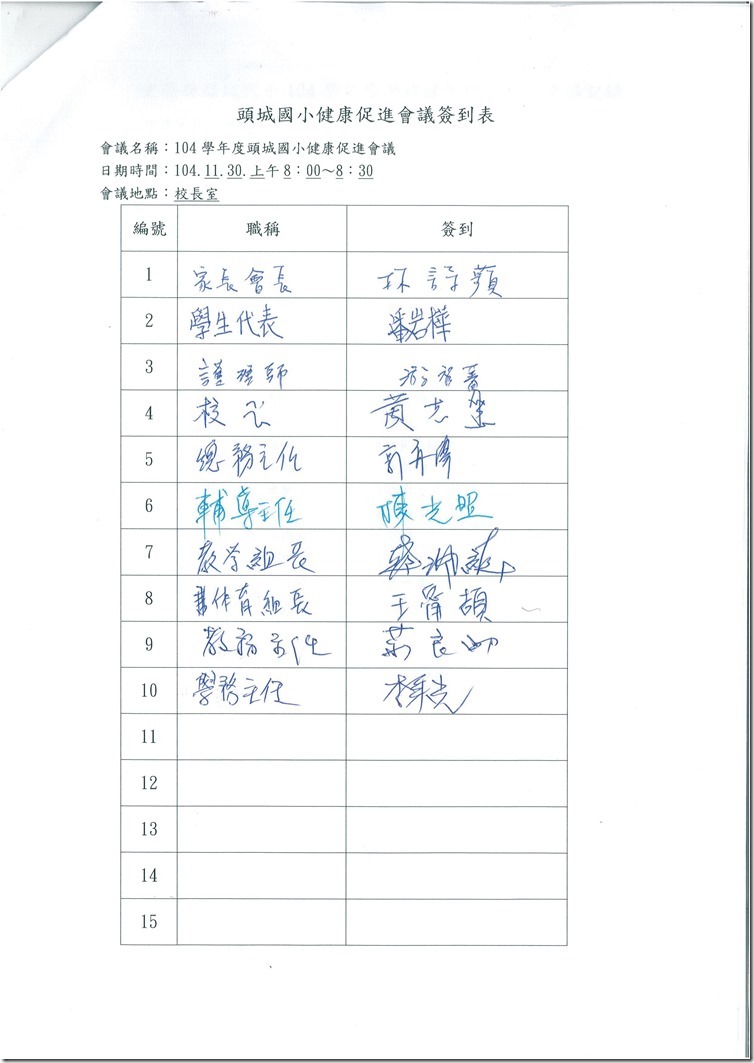 頭城國小健康促進會議簽到表
會議名稱：104 學年度頭城國小健康促進會議
日期時間：104.11.30.上午 8：00～8：30
會議地點：校長室
編號 職稱 簽到
1 家長會長
2 學生代表 潘岩樺
3 護理師
4 校長 黃志
5 總務主任
6 輔導主任 陳光照
7 教学組長
8 體育組長 王
9 教務主任
10 學務主任
11
12
13
14
15